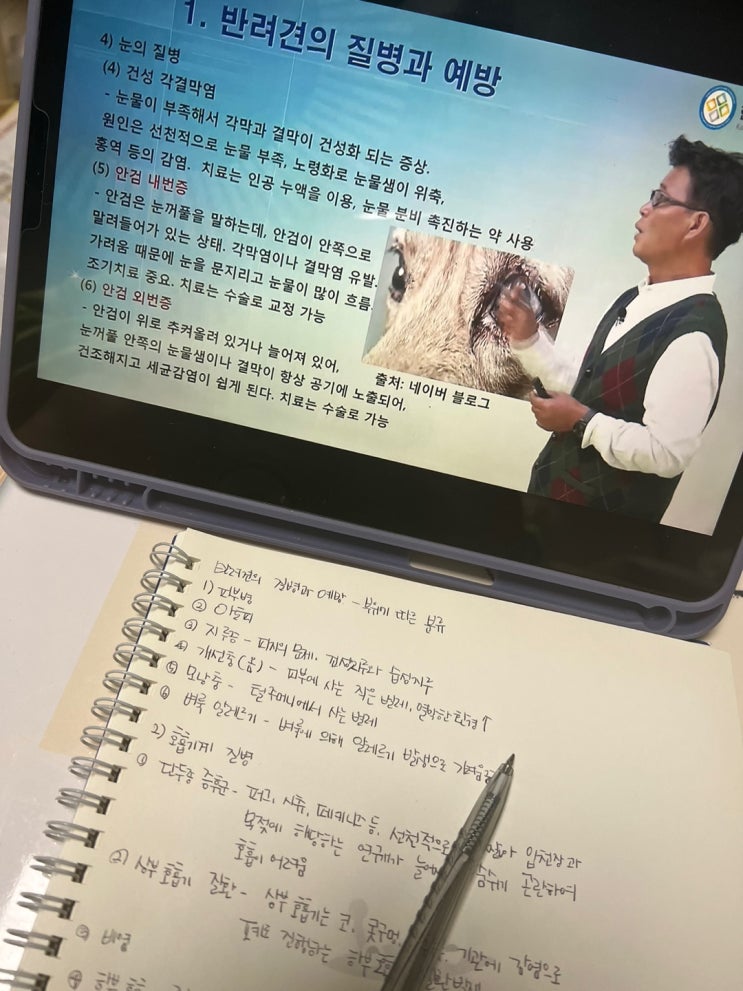 1. 반려견의 질병과 예방
4) 눈의 질병
(4) 건성 각결막염
- 눈물이 부족해서 각막과 결막이 건성화 되는 증상.
원인은 선천적으로 눈물 부족, 노령화로 눈물샘이 위축,
홍역 등의 감염. 치료는 인공 누액을 이용, 눈물 분비 촉진하는 약 사용
(5) 안검 내번증
- 안검은 눈꺼풀을 말하는데, 안검이 안쪽으로
말려들어가 있는 상태. 각막염이나 결막염 유발.
가려움 때문에 눈을 문지리고 눈물이 많이 흐름.
조기치료 중요. 치료는 수술로 교정 가능
(6) 안검 외번증
- 안검이 위로 추켜올려 있거나 늘어져 있어,
눈꺼풀 안쪽의 눈물샘이나 결막이 항상 공기에 노출되어,
건조해지고 세균감염이 쉽게 된다. 치료는 수술로 가능
출처: 네이버 블로그
반려견의 질병과 예방 - 부위에 따른 분류
1) 피부병
② 아토피
③ 지루증 - 피지의 문제. 건성지루와 습성지루
④ 개선충(옴) - 피부에 사는 작은 벌레, 열악한 환경↑
⑤ 모낭충 - 털구멍에서 사는 벌레
⑥ 벼룩 알레르기 - 벼룩에 의해 알레르기 발생으로 가려움
2) 호흡기계 질병
① 단두종 증후군 - 퍼그, 시츄, 페키니즈 등. 선천적으로 입천장과
목젖에 해당하는 연구개가 숨쉬기 곤란하여
호흡이 어려움
(2) 상부 호흡기 질환 - 상부 호흡기는 코, 콧구멍, 기관에 감염으로
진행하는 하부
③ 비염
④ 하부 호흡